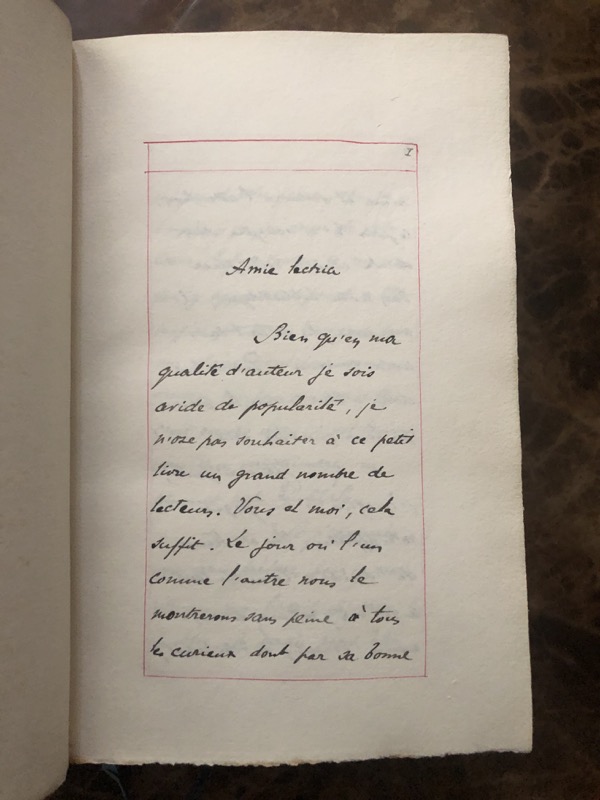 I
Amie lectrice
Bien qu'en ma
qualité d'auteur je sois
avide de popularité, je
n'ose pas souhaiter à ce petit
livre un grand nombre de
lecteurs. Vous et moi, cela
suffit. Le jour où l'un
comme l'autre nous le
montrerons sans peine à tous
les curieux dont par sa bonne